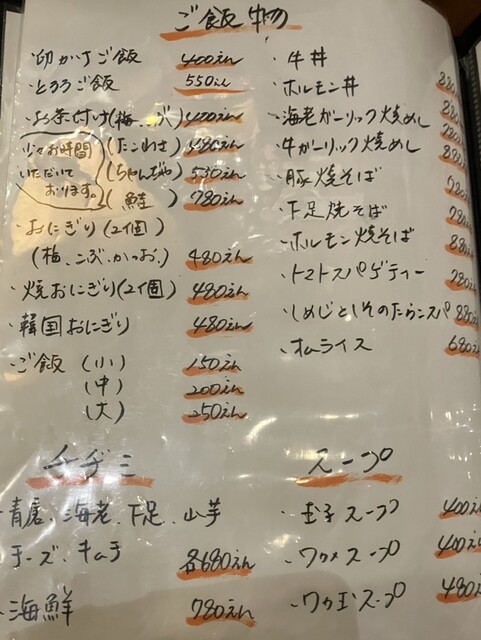 ご飯物
・卵かけご飯 400えん
・とろろご飯 550えん
・お茶付け(梅、こぶ) 400えん
少々お時間いただいております。
(たこわさ) 480えん
(ちゃんじゃ) 530えん
(鮭) 780えん
・おにぎり(2個)
(梅、こぶ、かつお、) 480えん
・焼おにぎり(2個) 480えん
・韓国おにぎり 480えん
・ご飯 (小) 150えん
(中) 200えん
(大) 250えん
・牛丼
・ホルモン丼 880
・海老ガーリック焼めし
・牛ガーリック焼めし
・豚焼そば 780
・下足焼そば 780
・ホルモン焼そば 880
・トマトスパゲティー 780
・しめじとしそのたらこスパ 880
・オムライス 680
チヂミ
・青唐、海老、下足、山芋
チーズ、キムチ 各680えん
・海鮮 780えん
スープ
・玉子スープ 400えん
・ワカメスープ 400えん
・ワカ玉スープ 480え